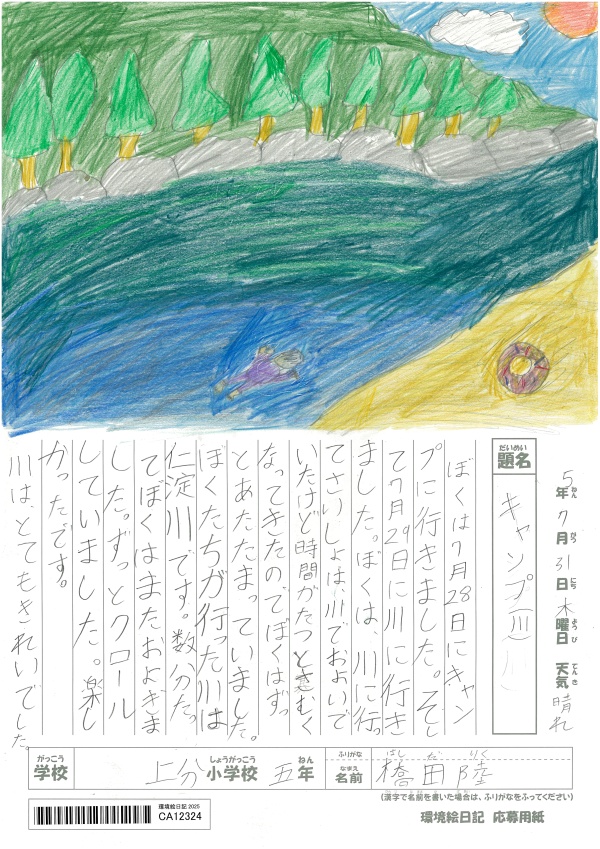 5年7月31日木曜日 天気 晴れ
ねん がつ にち ようび てんき
題名 キャンプ(川)
だいめい
ぼくは7月28日にキャン
プに行きました。そし
て7月29日に川に行き
ました。ぼくは、川に行っ
てさいしょは、川でおよいで
いたけど時間がたつとさむく
なってきたのでぼくはずっ
とあたたまっていました。
ぼくたちが行った川は
仁淀川です。数分たっ
てぼくはまたおよぎま
した。ずっとクロール
していました。楽し
かったです。
川は、とてもきれいでした。
がっこう しょうがっこう ねん
学校 上分小学校 五年
ふりがな はし だ りく
なまえ
名前 橋田陸
(漢字で名前を書いた場合は、ふりがなをふってください)
環境絵日記 2025
CA12324
環境絵日記 応募用紙